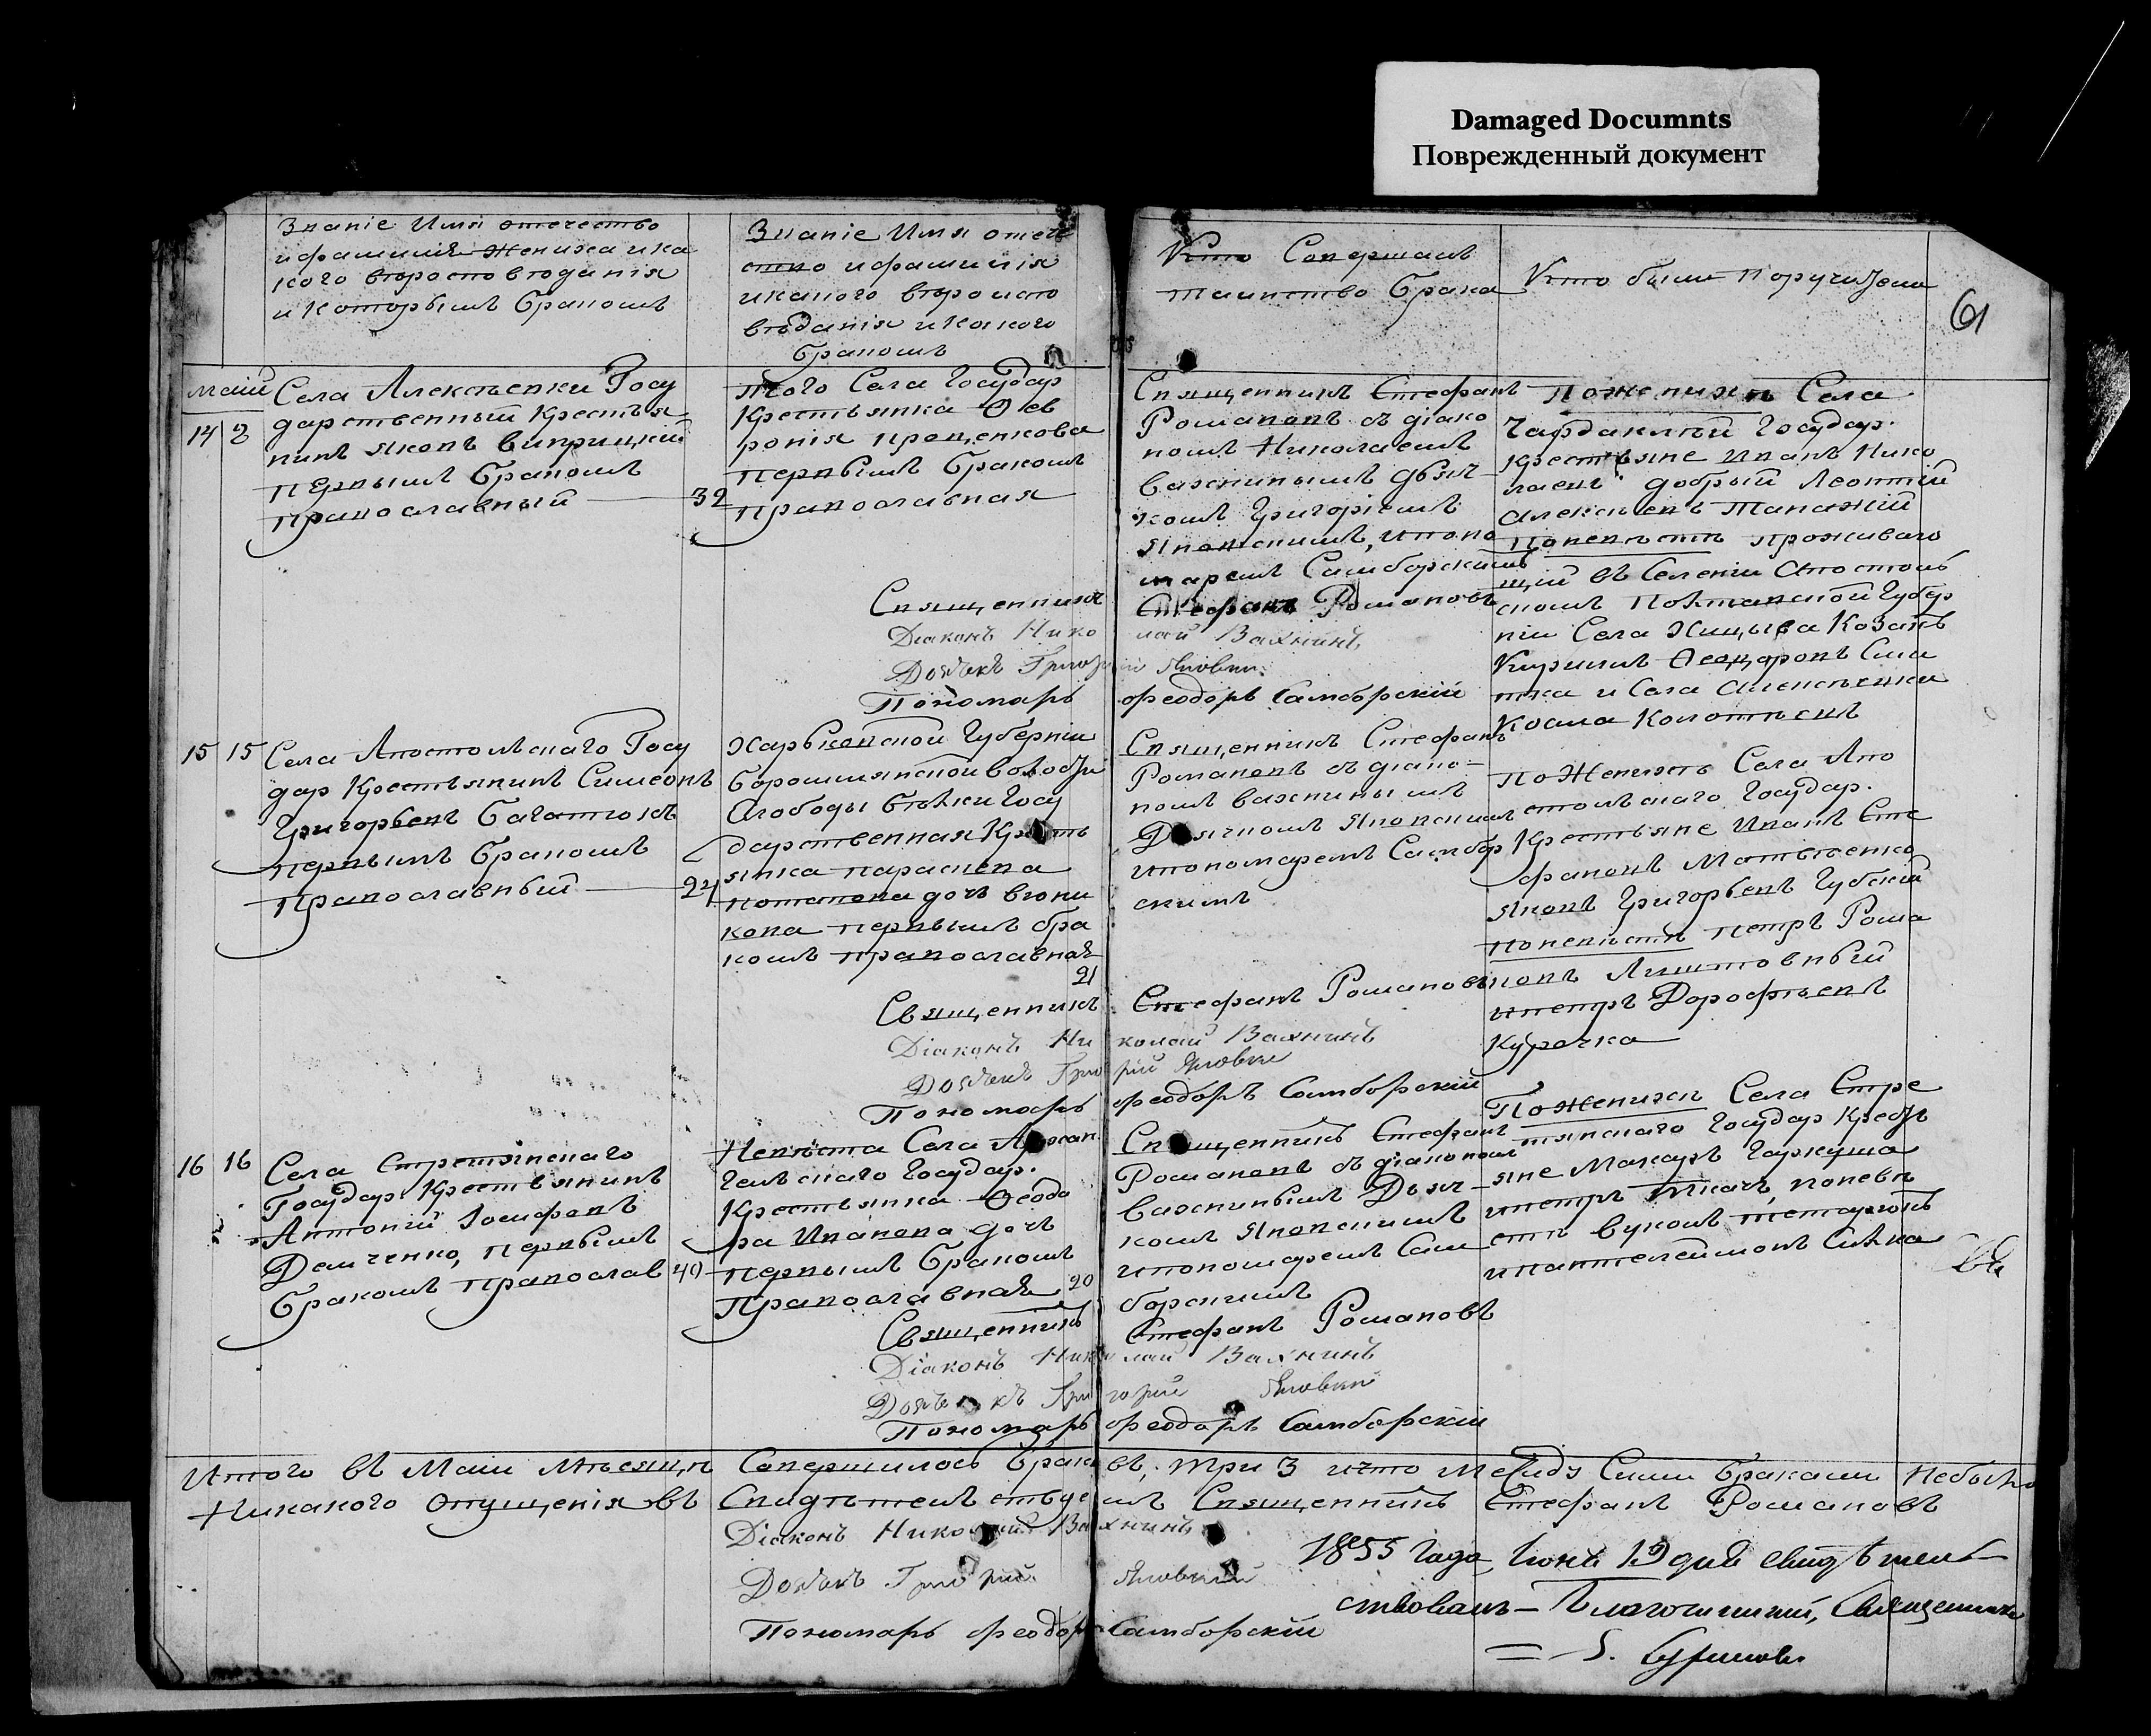 Damaged Documnts
Поврежденный документ
Званіе Имя отечество
и фамилія Жениха и ка
кого вѣроисповѣданія
и Которымъ бракомъ
Званіе Имя отече
ство и фамилія
и какого вѣроиспо
вѣданія и какого
бракомъ
Кто Совершалъ
таинство брака
Кто были Поручители
61
Маій
14 2
Села Алексѣевки Госу
дарственный Крестья
нинъ Яковъ
Первымъ бракомъ
православный
32
того Села Государ
Крестьянка Фев
ронія Проценкова
Первымъ бракомъ
православная
Священникъ Стефанъ
Романовъ съ діако
номъ Николаемъ
Вахнинымъ дьяч
комъ Григоріемъ
Яновскимъ, и поно
маремъ Самборскимъ
По женихѣ Села
Государ.
Крестьяне Иванъ Нико
лаевъ добрый Леонтій
Алексѣевъ
По невѣстѣ проживаю
щій въ Селеніи Апостоль
скомъ Полтавской Губер
ніи Села Козакъ
Кириллъ Феодоровъ
и Села Алексѣевки
Косма
Священникъ Стефанъ Романовъ
Діаконъ Николай Вахнинъ
Дьячекъ Григорій
Пономарь Феодоръ Самборскій
15 15
Села Апостольскаго Госу
дар Крестьянинъ Симеонъ
Григорьевъ
первымъ бракомъ
Православный
24
Харьковской Губерніи
Боромлянской волости
Слободы Бѣлки Госу
дарственная Кресть
янка параскева
потапова дочь
первымъ бра
комъ православная
21
Священникъ Стефанъ
Романовъ съ діако-
номъ вахнинымъ
Дьячкомъ Яновскимъ
и пономаремъ Самбор
скимъ
по Женихѣ Села Апо
стольскаго Государ.
Крестьяне Иванъ Сте
фановъ
Яковъ Григорьевъ Губскій
по невѣстѣ петръ Рома
новъ
и петръ Дорофѣевъ
Курочка
Священникъ Стефанъ Романовъ
Діаконъ Николай Вахнинъ
Дьячекъ Григорій
Пономарь Феодоръ Самборскій
16 16
Села Стретинскаго
Государ Крестьянинъ
Антоній Іосифовъ
Демченко, первымъ
бракомъ православ
40
Невѣста Села Архан
гельскаго Государ.
Крестьянка Феодо
ра Иванова дочь
первымъ бракомъ
Православная
20
Священникъ Стефанъ
Романовъ съ діакономъ
Вахнинымъ Дьяч
комъ Яновскимъ
и пономаремъ Сам
борскимъ
По женихѣ Села Стре
тинскаго Государ Кресть
яне Макаръ Гаркуша
и петръ Ткачъ, по невѣ
стѣ
и пантелеймонъ
Священникъ Стефанъ Романовъ
Діаконъ Николай Вахнинъ
Дьячекъ Григорій
Пономарь Феодоръ Самборскій
Итого въ Маіи Мѣсяцѣ Совершилось браковъ, три 3 и что Между Сими браками Небыло
Никакого Опущенія въ Священникъ Стефанъ Романовъ
Діаконъ Николай Вахнинъ
Дьячекъ Григорій
Пономарь Феодоръ Самборскій
1855 года, Іюнь 19 дня свидѣтель
ствовалъ – Благочинный, Священникъ